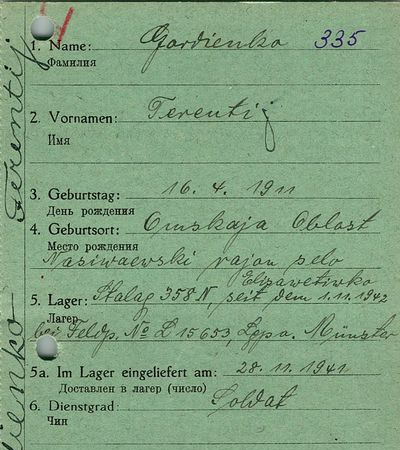 1. Name: Gordienko 335
Фамилия
2. Vornamen: Terentij
Имя
3. Geburtstag: 16. 4. 1911
День рождения
4. Geburtsort: Omskaja Oblast
Место рождения
Nasiwaewski rajon selo
Elizawetinka
5. Lager: Stalag 358 N, seit dem 1. 11. 1942
Лагер
bei Feldp. № L 15653, Lgpa. Münster
5a. Im Lager eingeliefert am: 28. 11. 1941
Доставлен в лагер (число)
6. Dienstgrad: Soldat
Чин
Terentij